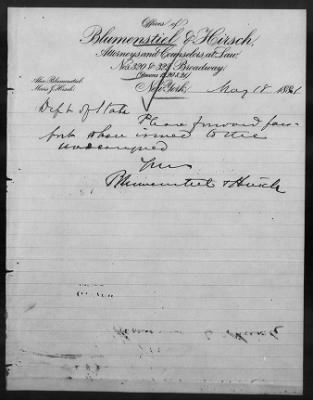 Offices of
Blumenstiel & Hirsch,
Attorneys and Counselors at Law
Nos. 320 & 322 Broadway.
(Rooms 20 & 21)
Alex. Blumenstiel
Morris J. Hirsch
New York May 18 188
Dept of State
Please forward pass-
port when issued to the
undersigned
Yours
Blumenstiel & Hirsch